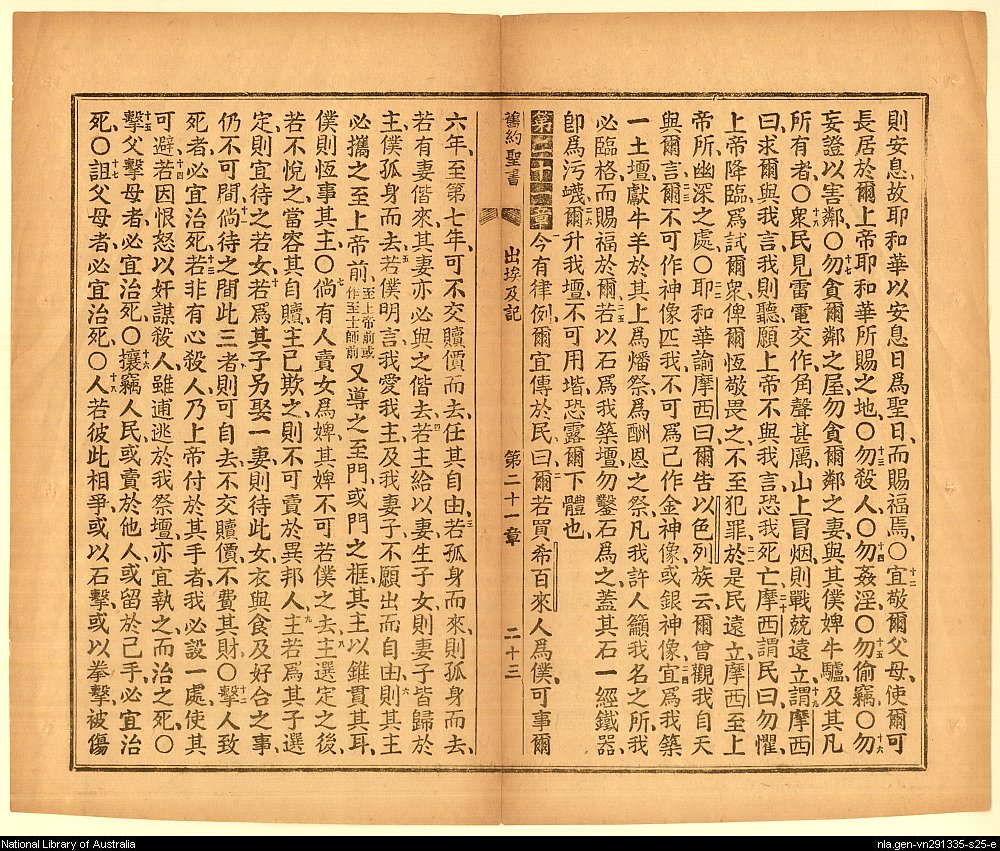 則安息、故耶和華以安息日爲聖日、而賜福焉、○十二宜敬爾父母、使爾可
長居於爾上帝耶和華所賜之地、○十三勿殺人、○十四勿姦淫、○十五勿偷竊、○十六勿
妄證以害鄰、○十七勿貪爾鄰之屋、勿貪爾鄰之妻、與其僕婢牛驢、及其凡
所有者、○十八衆民見雷電交作、角聲甚厲、山上冒烟、則戰兢遠立、十九謂摩西
曰、求爾與我言、我則聽、願上帝不與我言、恐我死亡、二十摩西謂民曰、勿懼、
上帝降臨、爲試爾衆、俾爾恆敬畏之、不至犯罪、二一於是民遠立、摩西至上
帝所幽深之處、○二二耶和華諭摩西曰、爾告以色列族云、爾曾觀我自天
與爾言、二三爾不可作神像匹我、不可爲己作金神像、或銀神像、二四宜爲我築
一土壇、獻牛羊於其上、爲燔祭、爲酬恩之祭、凡我許人籲我名之所、我
必臨格而賜福於爾、二五若以石爲我築壇、勿鑿石爲之、蓋其石一經鐵器、
卽爲污衊、二六爾升我壇、不可用堦、恐露爾下體也、
第二十一章 一今有律例、爾宜傳於民曰、二爾若買希百來人爲僕、可事爾
舊約聖書 出埃及記 第二十一章 二十三
六年、至第七年、可不交贖價而去、任其自由、三若孤身而來、則孤身而去、
若有妻偕來、其妻亦必與之偕去、四若主給以妻、生子女、則妻子皆歸於
主、僕孤身而去、五若僕明言、我愛我主、及我妻子、不願出而自由、六則其主
必攜之至上帝前、至上帝前或作至士師前又導之至門、或門之框、其主以錐貫其耳、
僕則恆事其主、○七倘有人賣女爲婢、其婢不可若僕之去、八主選定之後、
若不悅之、當容其自贖、主已欺之、則不可賣於異邦人、九主若爲其子選
定、則宜待之若女、十若爲其子另娶一妻、則待此女、衣與食及好合之事、
仍不可間、十一倘待之間此三者、則可自去、不交贖價、不費其財、○十二擊人致
死者、必宜治死、十三若非有心殺人、乃上帝付於其手者、我必設一處、使其
可避、十四若因恨怒以奸謀殺人、雖逋逃於我祭壇、亦宜執之而治之死、○
十五擊父擊母者、必宜治死、○十六攘竊人民、或賣於他人、或留於己手、必宜治
死、○十七詛父母者、必宜治死、○十八人若彼此相爭、或以石擊、或以拳擊、被傷
National Library of Australia
nla.gen-vn291335-s25-e